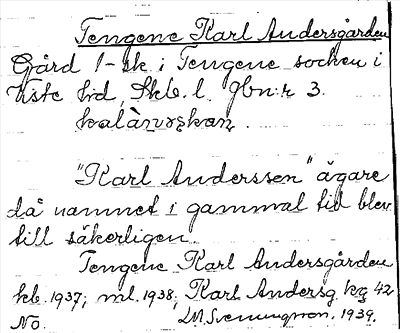 Tengene Karl Andersgården
Gård 1-sk i Tengene socken i
Viste hd, Skb. l. Jbn:r 3.
"Karl Anderssen" ägare
då namnet i gammal tid blev
till säkerligen.
Tengene Karl Andersgården
kb. 1937; ml. 1938; Karl Andersg. kg 42
No. LM. Svenungsson. 1939.